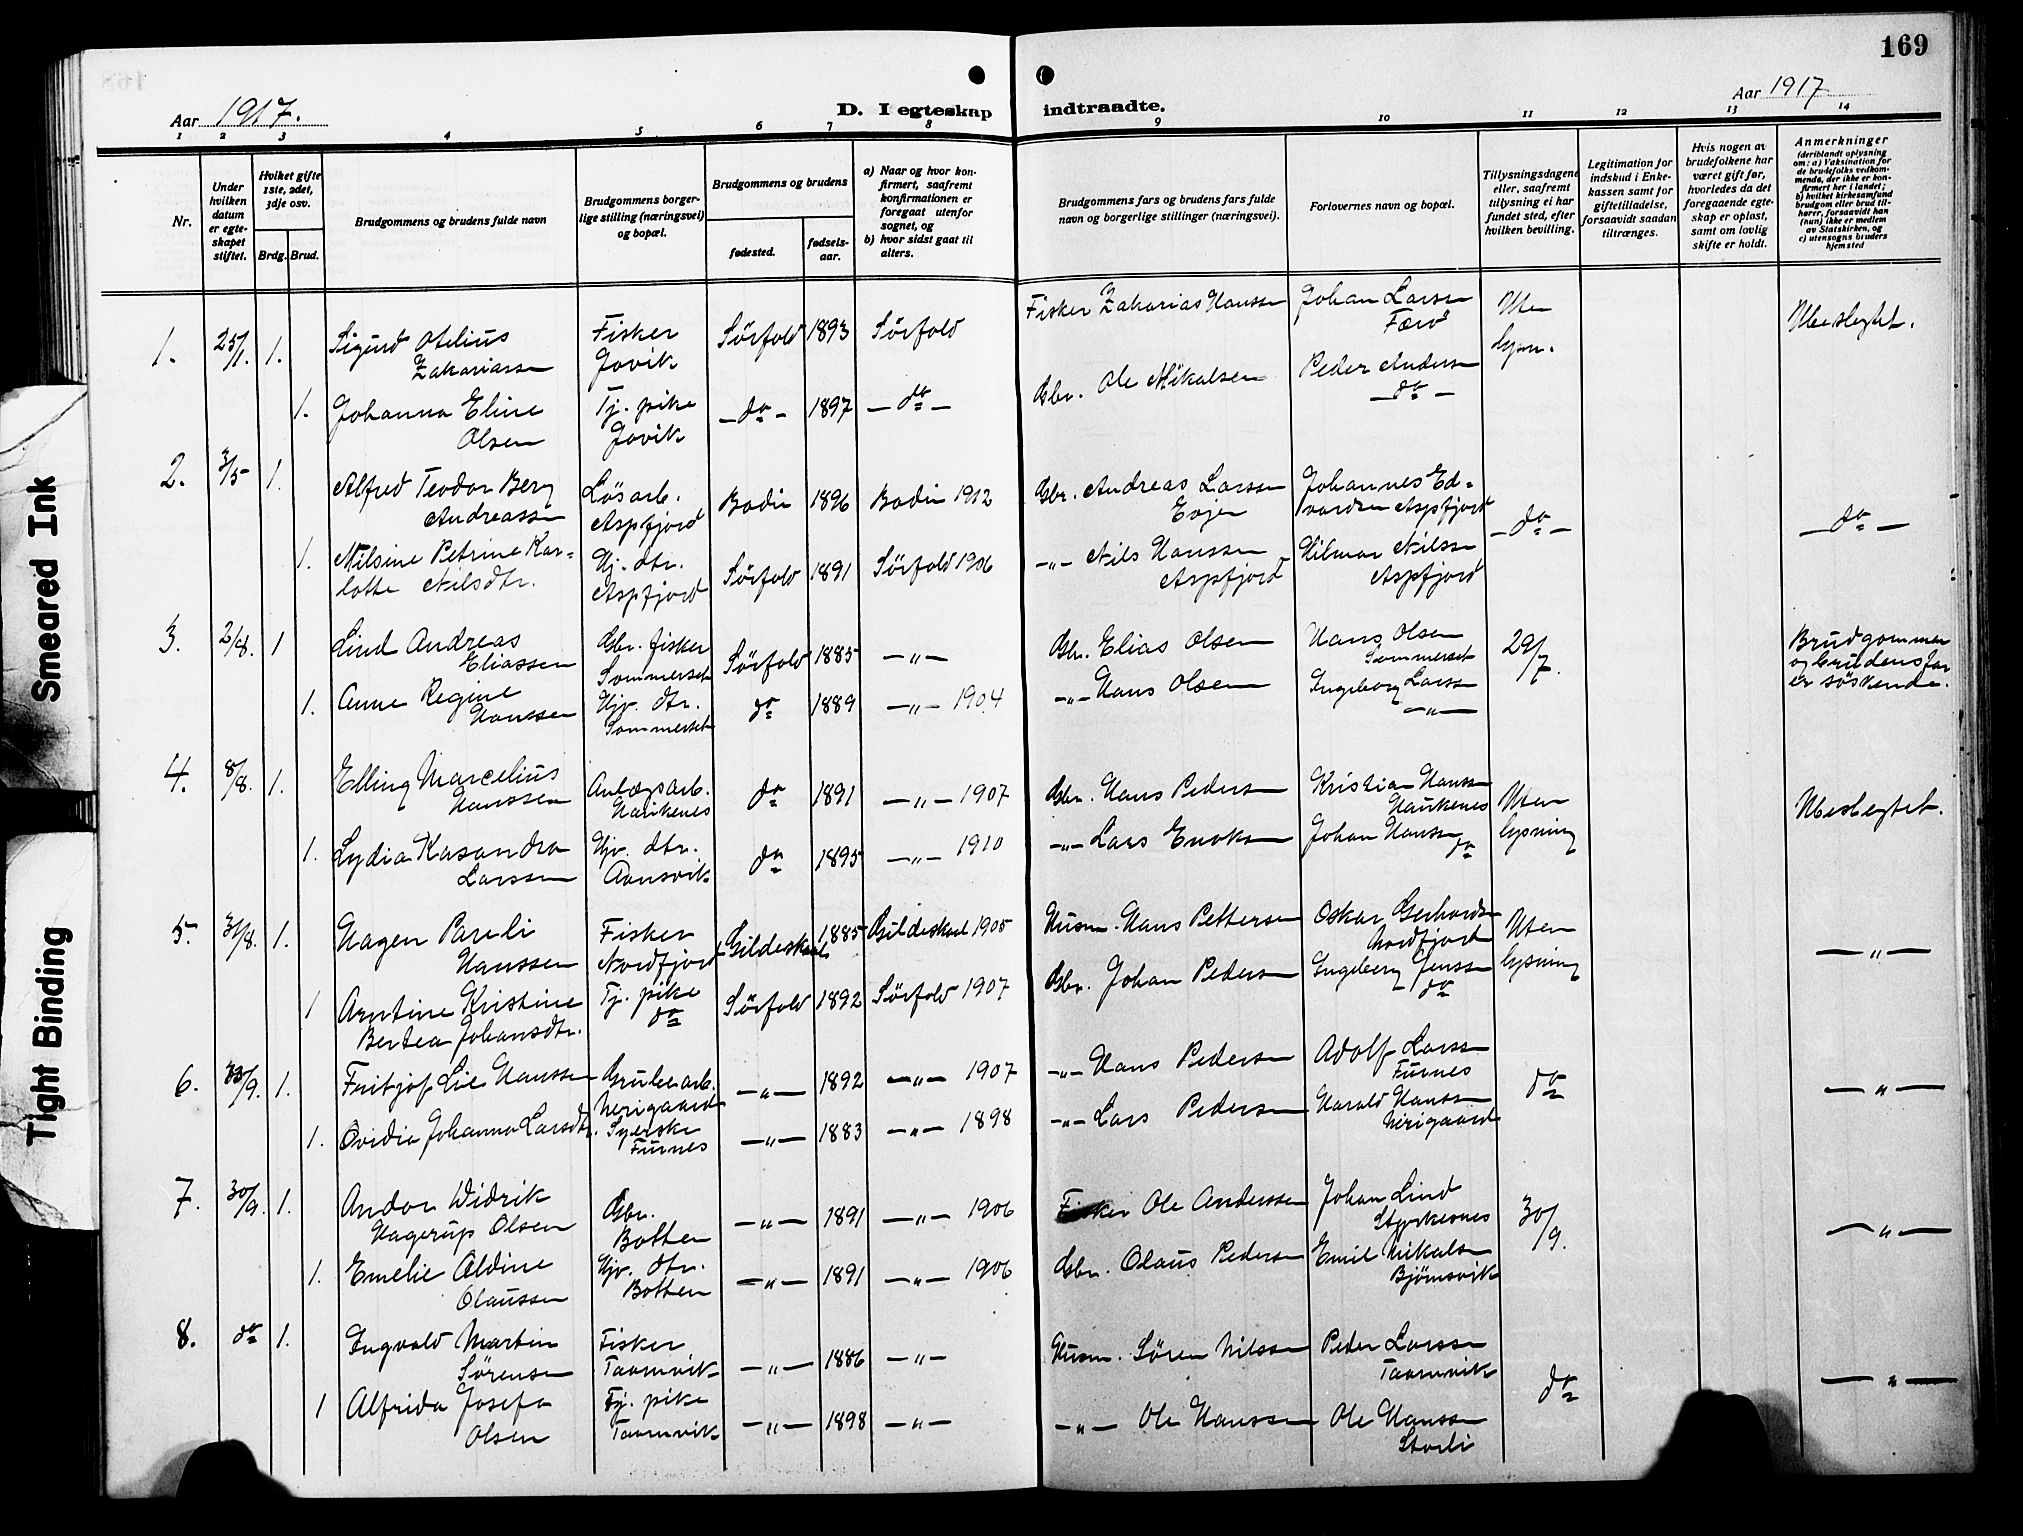 169
Aar 1917.
D. I egteskap indtraadte.
Aar 1917
1 2 3 4 5 6 7 8 9 10 11 12 13 14
Nr.
Under hvilken datum er egteskapet stiftet.
Hvilket gifte 1ste, 2det, 3dje osv.
Brdg. Brud.
Brudgommens og brudens fulde navn
Brudgommens borgerlige stilling (næringsvei) og bopæl.
Brudgommens og brudens
fødested.
fødselsaar.
a) Naar og hvor konfirmert, saafremt konfirmationen er foregaat utenfor sognet, og
b) hvor sidst gaat til alters.
Brudgommens fars og brudens fars fulde navn og borgerlige stillinger (næringsvei).
Forlovernes navn og bopæl.
Tillysningsdagene eller, saafremt tillysning ei har fundet sted, efter hvilken bevilling.
Legitimation for indskud i Enkekassen samt for giftetilladelse, forsaavidt saadan tiltrænges.
Hvis nogen av brudefolkene har været gift før, hvorledes da det foregaaende egteskap er opløst, samt om lovlig skifte er holdt.
Anmerkninger
(deriblandt oplysning om: a) Vaksination for de brudefolks vedkommende, der ikke er konfirmert her i landet; b) hvilket kirkesamfund brudgom eller brud tilhører, forsaavidt han (hun) ikke er medlem av Statskirken, og c) utensogns bruders hjemsted
1. 25/1. 1. Sigurd Otelius Zakariassen Fisker Jovik Sørfold 1893 Sørfold Fisker Zakarias Hanssen Johan Larsen Færø Uten lysn. Ubeslegtet.
1. Johanna Eline Olsen Tj. pike Jovik -do- 1897 -do- Gbr. Ole Mikalsen Peder Andersen -do-
2. 3/5 1. Alfred Teodor Berg Andreassen Løsarb. Aspfjord Bodin 1896 Bodin 1912 Gbr. Andreas Larssen Evjen Johannes Edvardsen Aspfjord -do- -do-
1. Nilsine Petrine Karlotte Nilsdtr. Hj. dtr. Aspfjord Sørfold 1891 Sørfold 1906 -"- Nils Hanssen Aspfjord Hilmar Nilssen Aspfjord
3. 2/8. 1 Lind Andreas Eliassen Gbr. fisker Sommerset Sørfold 1885 -"- Gbr. Elias Olsen Hans Olsen Sommerset 29/7. Brudgommen og brudens far er søskende.
1. Anne Regine Hanssen Hjv. dtr. Sommerset do 1889 -"- 1904 -"- Hans Olsen Ingeborg Larssen -"-
4. 8/8. 1. Elling Marcelius Hanssen Anlægsarb. Haukenes do 1891 -"- 1907 Gbr. Hans Pedersen Kristian Hanssen Haukenes Uten lysning Ubeslegtet.
1. Lydia Kasandra Larssen Hjv. dtr. Aansvik do 1895 -"- 1910 -"- Lars Enoksen Johan Hanssen do
5. 31/8. 1. Hagen Pareli Hanssen Fisker Nordfjord Gildeskaal 1885 Gildeskaal 1905 Husm. Hans Pettersen Oskar Gerhardsen Nordfjord Uten lysning -"-
1 Arntine Kristine Bertea Johansdtr. Tj. pike do Sørfold 1892 Sørfold 1907 Gbr. Johan Pedersen Engeberg Jenssen do
6. /9. 1. Fritjof Lie Hanssen Grubearb. Nerigaard -"- 1892 -"- 1907 -"- Hans Pedersen Adolf Larssen Furnes do -"-
1. Ovidia Johanna Larsdtr. Syerske Furnes -"- 1883 -"- 1898 -"- Lars Pedersen Harald Hanssen Nerigaard
7. 30/9. 1. Andor Widrik Hagerup Olsen Gbr. Botten -"- 1891 -"- 1906 Fisker Ole Anderssen Johan Lind Styrkesnes 30/9. -"-
1. Emelie Aldine Olaussen Hjv. dtr. Botten -"- 1891 -"- 1906 Gbr. Olaus Pedersen Emil Mikalsen Bjørnsvik
8. do 1. Ingvald Martin Sørensen Fisker Taarnvik -"- 1886 -"- Husm. Søren Nilssen Peder Larssen Taarnvik do -"-
1 Alfrida Josefa Olsen Tj. pike Taarnvik -"- 1898 -"- -"- Ole Hanssen Ole Hanssen Storli
Smeared Ink
Tight Binding